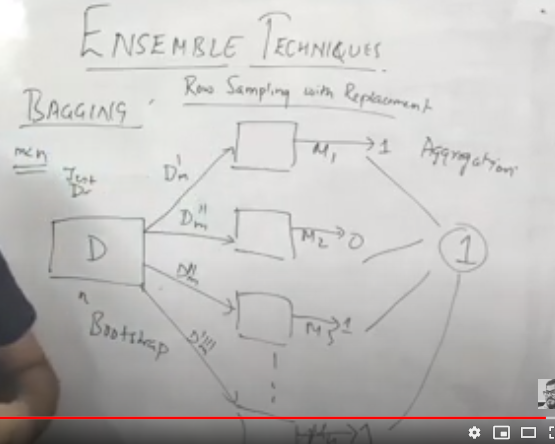 ENSEMBLE TECHNIQUES
Row Sampling with Replacement
BAGGING
m<n
Test
D
n
Bootstrap
D'm
D''m
M1 → 1
M2 → 0
M3 → 1
Aggregation
1